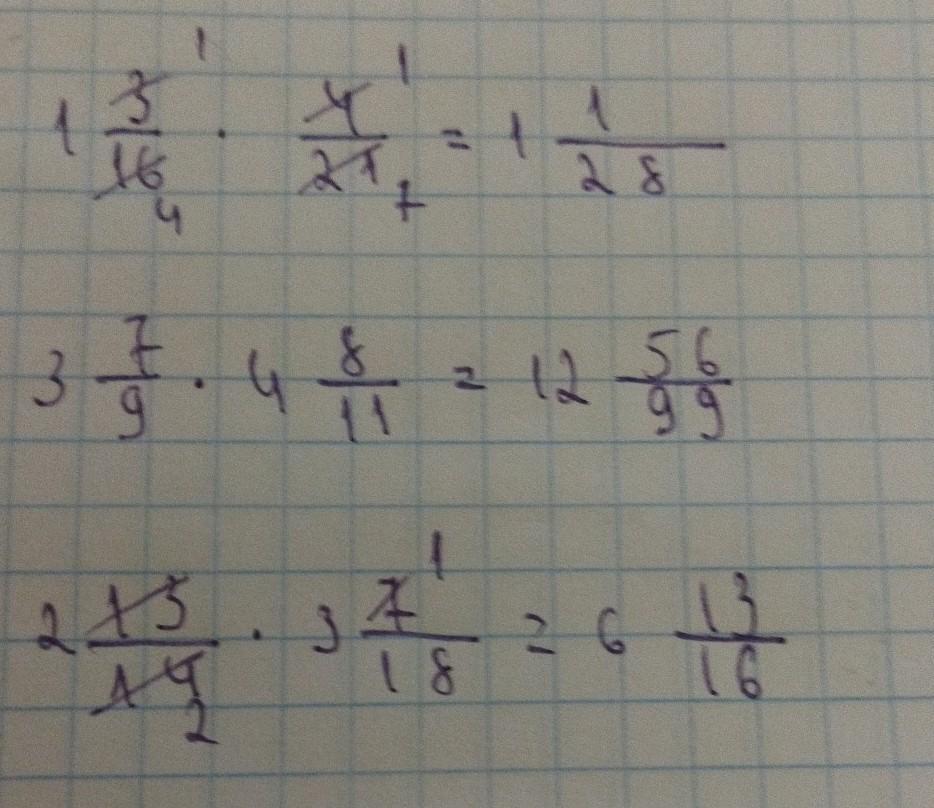 1 3/16 · 4/21 = 1 1/28
3 7/9 · 4 8/11 = 12 56/99
2 13/14 · 3 7/18 = 6 13/16